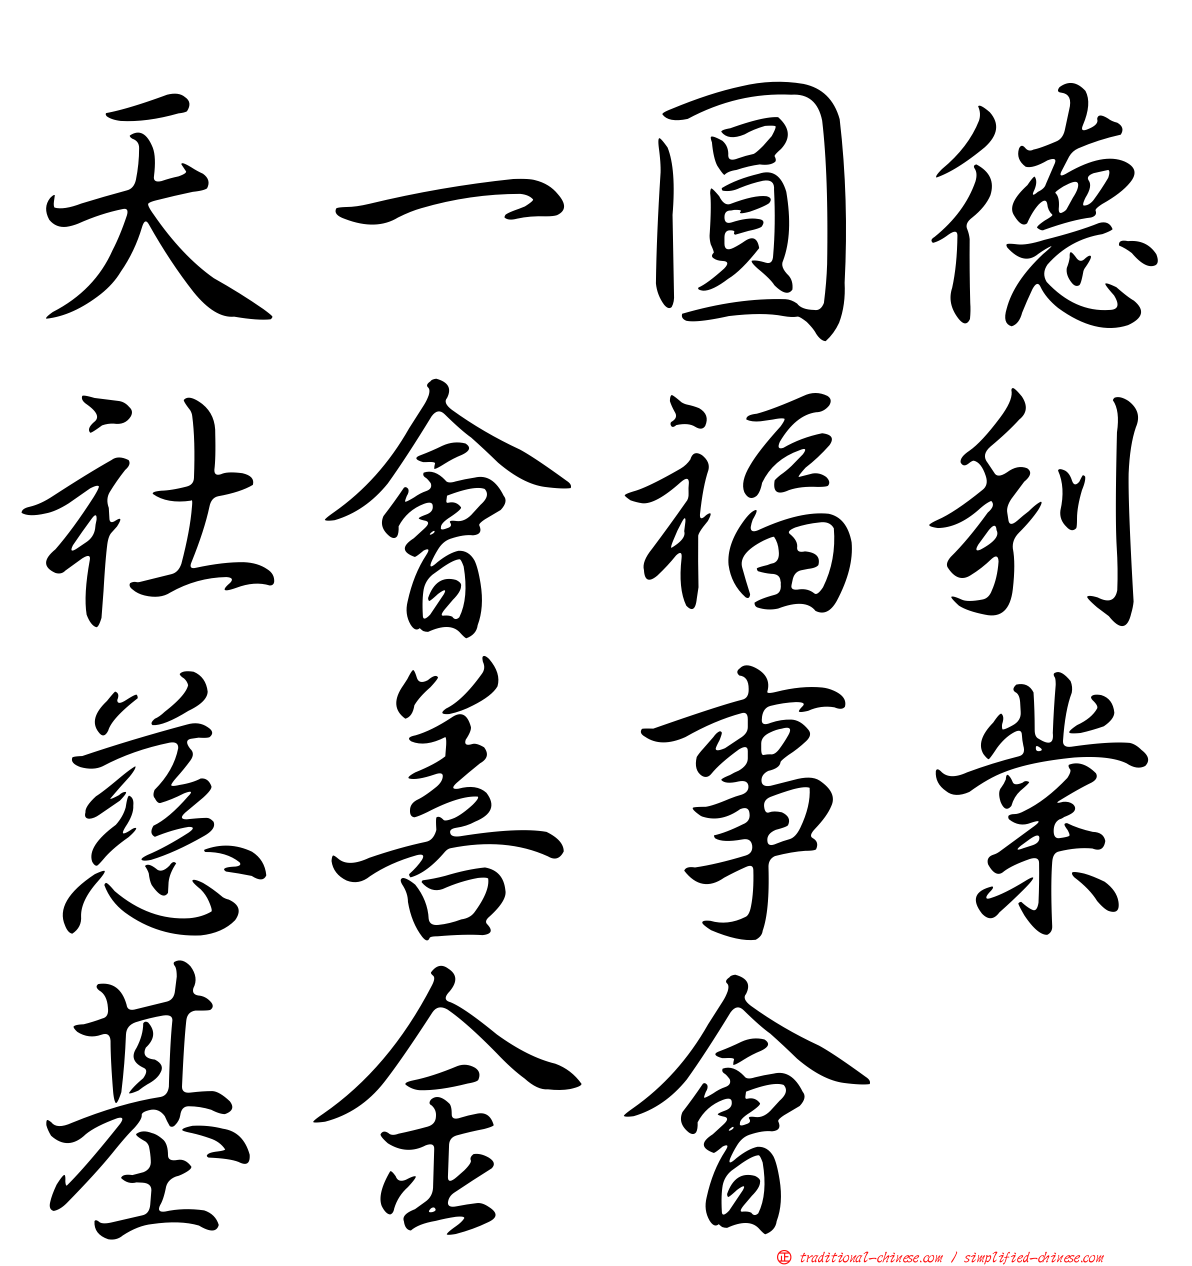 天一圓德
社會福利
慈善事業
基金會
正 traditional-chinese.com / simplified-chinese.com